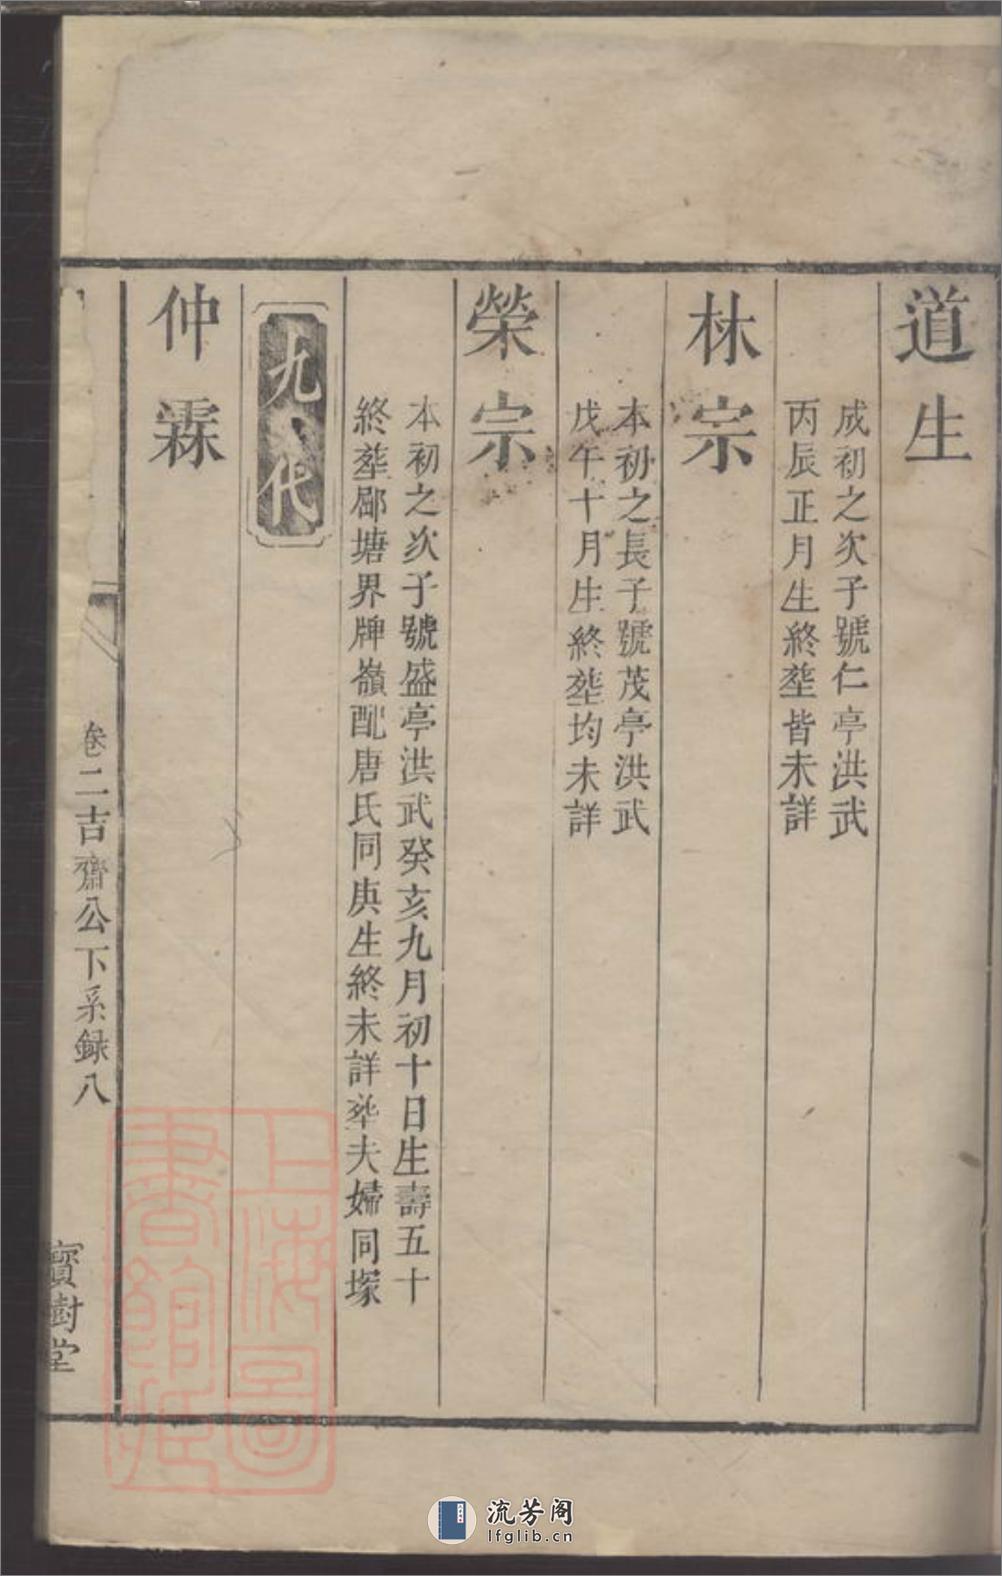 道生
成初之次子號仁亭洪武
丙辰正月生終塟皆未詳
林宗
本初之長子號茂亭洪武
戊午十月生終塟均未詳
榮宗
本初之次子號盛亭洪武癸亥九月初十日生壽五十
終塟鄢塘界牌嶺配唐氏同庚生終未詳塟夫婦同塚
九代
仲霖
卷二吉齋公下系録八
寳樹堂
上海圖書館藏
流芳阁
lfglib.cn